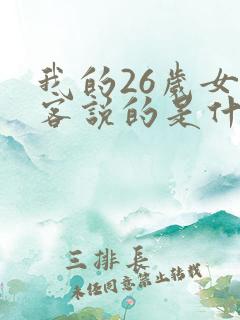 我的26岁女
客说的是什
三排长
未经同意禁止转载